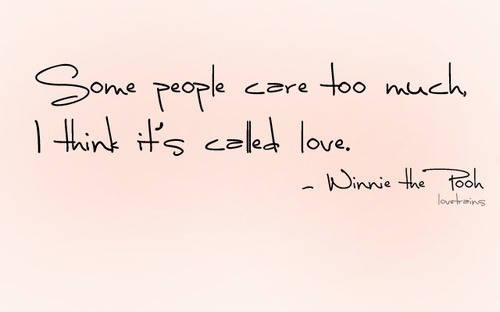 Some people care too much,
I think it's called love.
- Winnie the Pooh
lovetrains